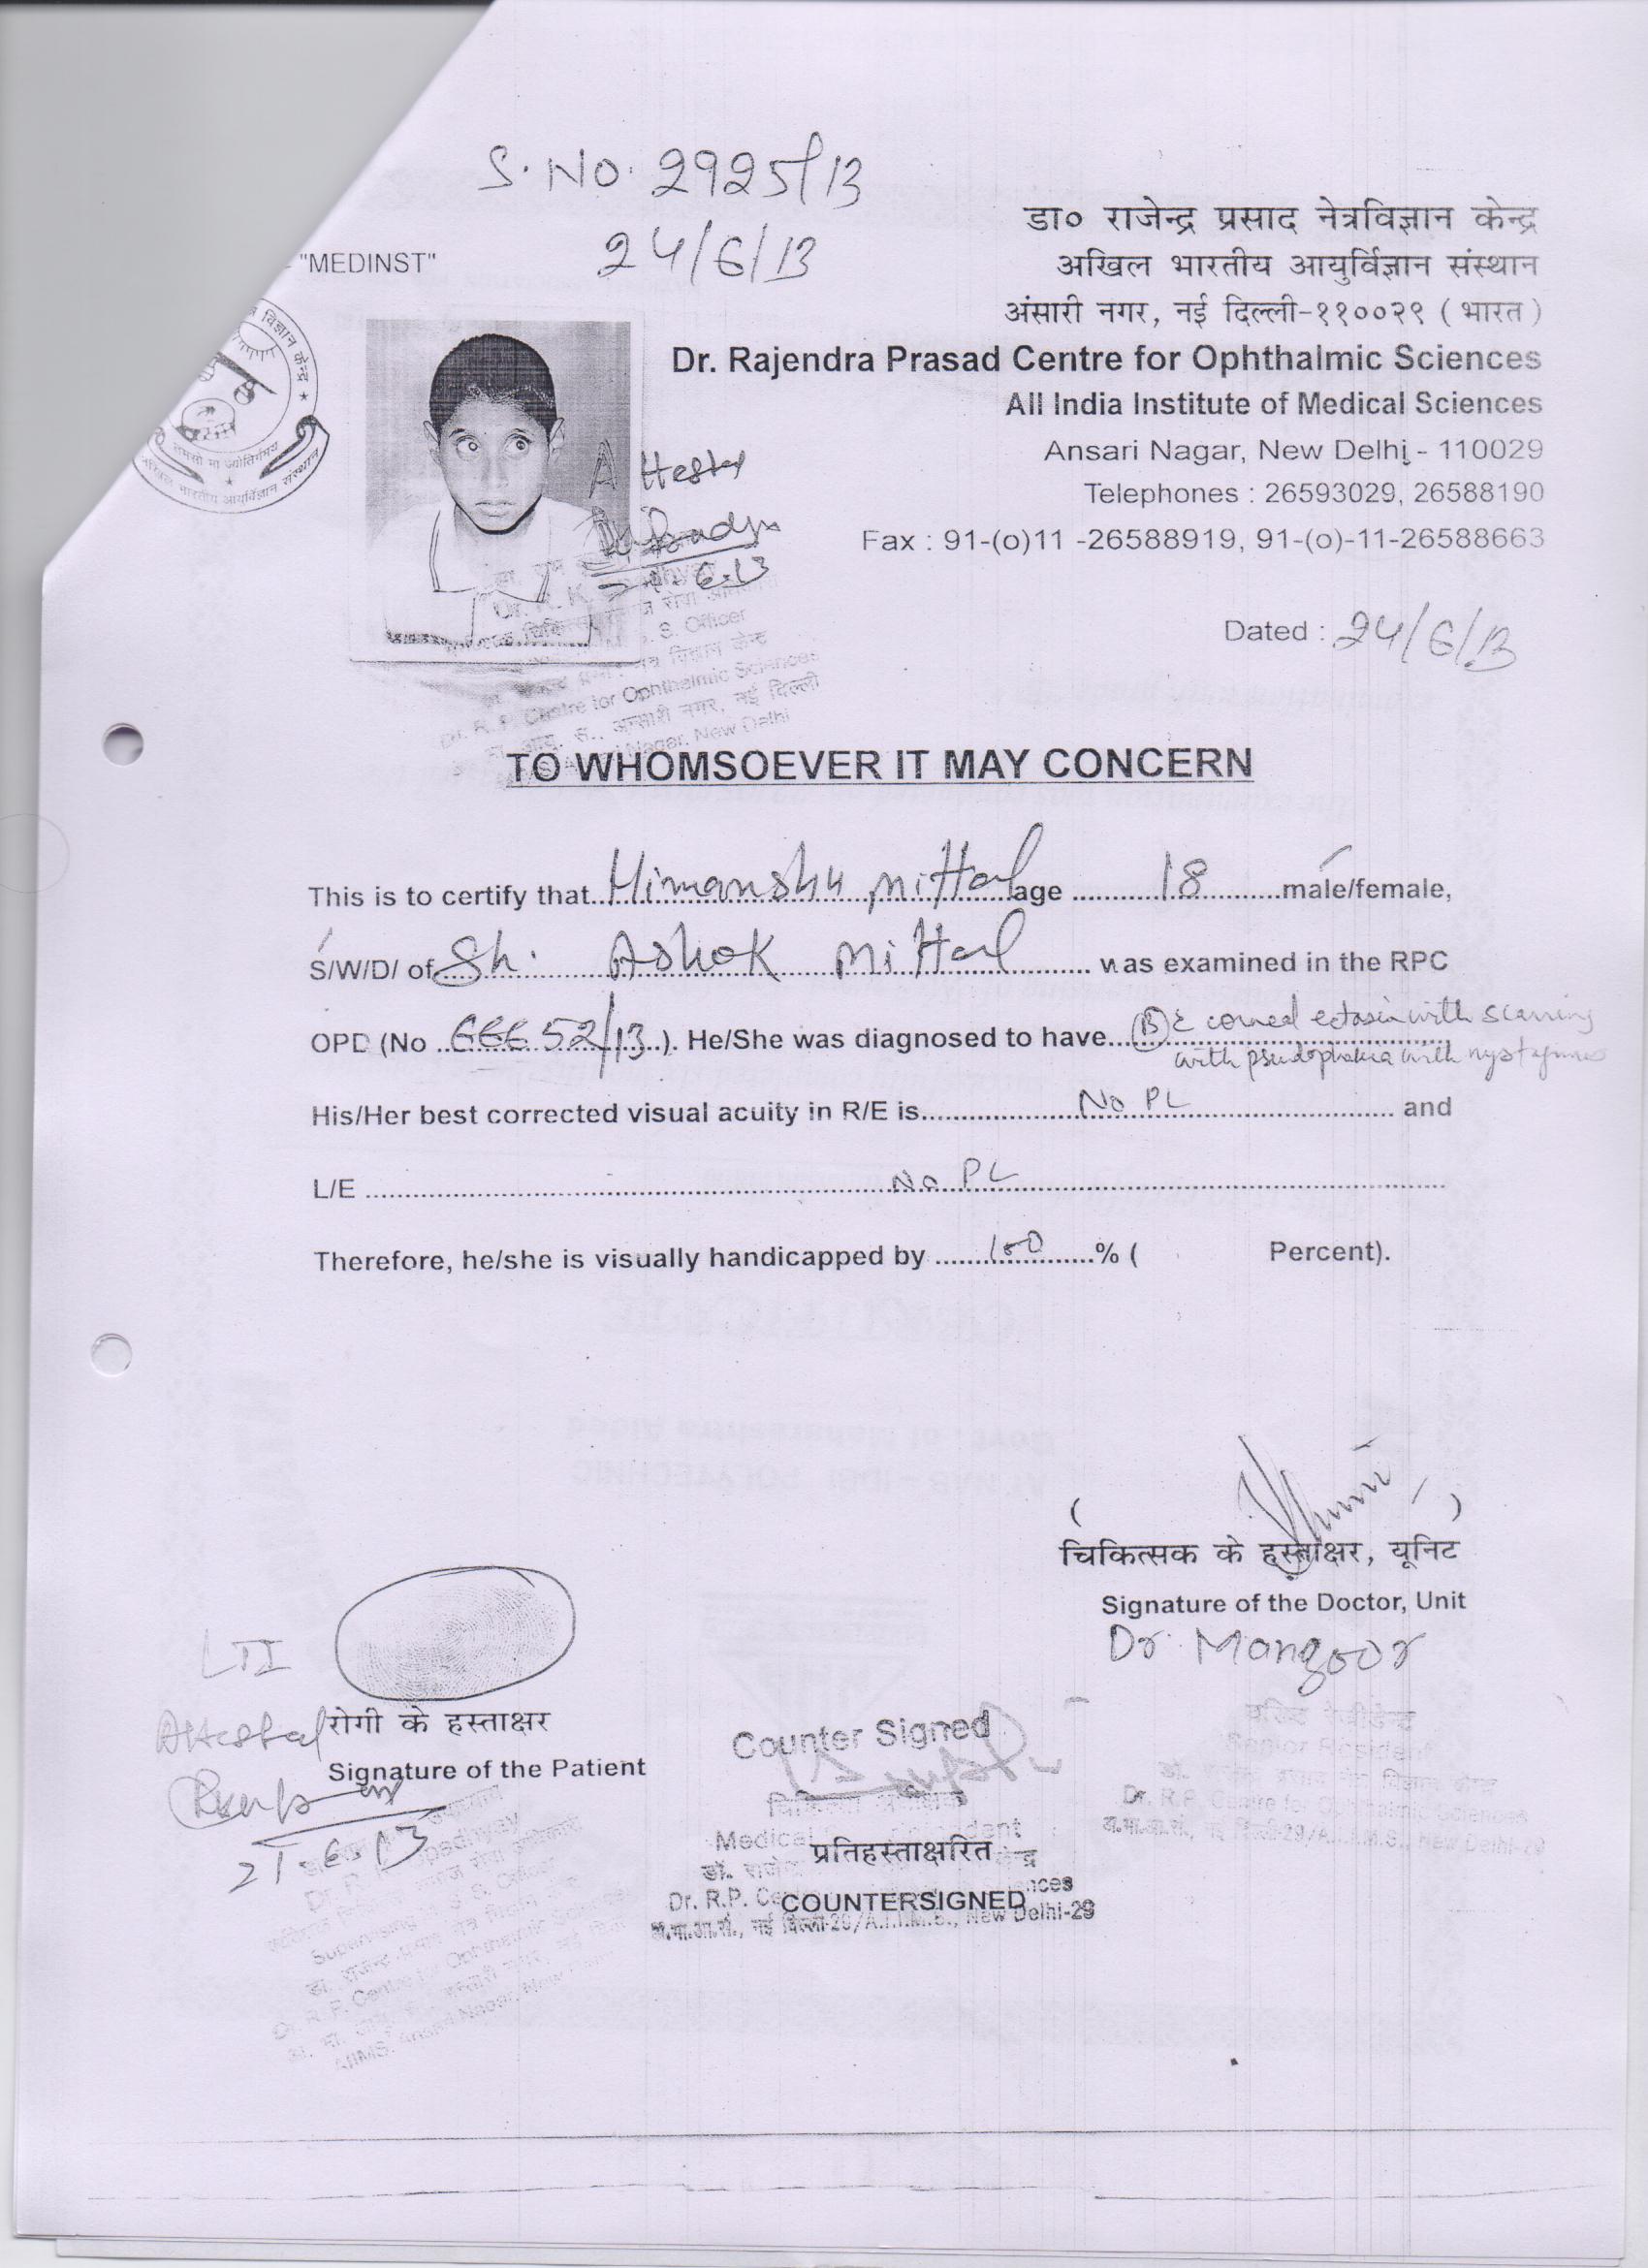 S. No. 2925/13
24/6/13
"MEDINST"
डा० राजेन्द्र प्रसाद नेत्रविज्ञान केन्द्र
अखिल भारतीय आयुर्विज्ञान संस्थान
अंसारी नगर, नई दिल्ली-११००२९ (भारत)
Dr. Rajendra Prasad Centre for Ophthalmic Sciences
All India Institute of Medical Sciences
Ansari Nagar, New Delhi - 110029
Telephones : 26593029, 26588190
Fax : 91-(o)11 -26588919, 91-(o)-11-26588663
Dated : 24/6/13
S. Officer
Centre for Ophthalmic Sciences
अन्सारी नगर, नई दिल्ली
Nagar, New Delhi
TO WHOMSOEVER IT MAY CONCERN
This is to certify that Himanshu Mittal age 18 male/female,
S/W/D/ of Sh. Ashok Mittal was examined in the RPC
OPD (No 66652/13). He/She was diagnosed to have (B)E corneal ectasia with scarring
with pseudophakia with nystagmus
His/Her best corrected visual acuity in R/E is No PL and
L/E No PL
Therefore, he/she is visually handicapped by 100 % ( Percent).
चिकित्सक के हस्ताक्षर, यूनिट
Signature of the Doctor, Unit
Dr. Mangoor
LTI
Attested
रोगी के हस्ताक्षर
Signature of the Patient
Counter Signed
Medical
प्रतिहस्ताक्षरित
COUNTERSIGNED
Dr. R.P.
नई दिल्ली-29/A.I.I.M.S., New Delhi-29
Senior Resident
Dr. R.P. Centre for Ophthalmic Sciences
नई दिल्ली-29/A.I.I.M.S., New Delhi-29